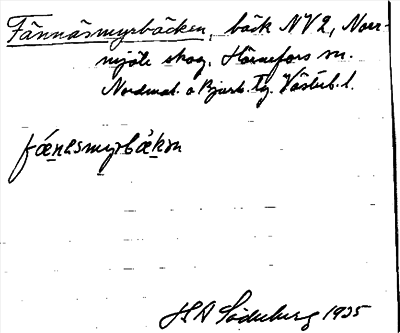 Fännäsmyrbäcken, bäck NV2, Norr-
mjöle skog. Hörnefors sn.
Nordmal. o Bjurh. tg. Västerb. l.
fǽnɛsmyrbäkən
H A Söderberg 1935